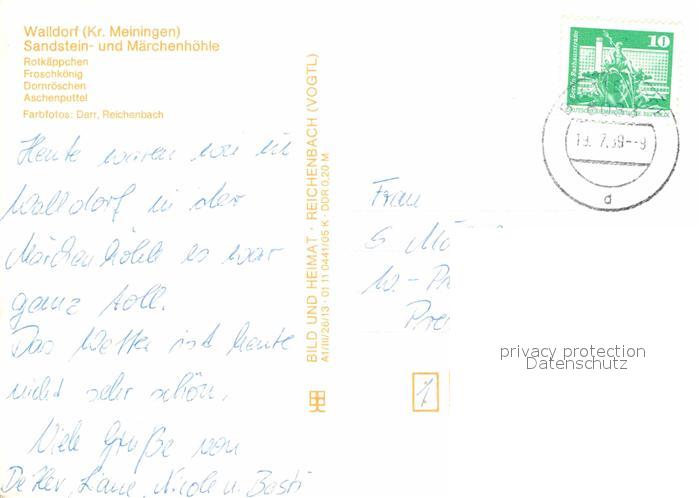 Walldorf (Kr. Meiningen)
Sandstein- und Märchenhöhle
Rotkäppchen
Froschkönig
Dornröschen
Aschenputtel
Farbfotos: Darr, Reichenbach
Heute waren wir in
Walldorf in der
Märchenhöhle es war
ganz toll.
Das Wetter ist heute
nicht sehr schön.
Viele Grüße von
Nicole u. Basti
BILD UND HEIMAT · REICHENBACH (VOGTL)
A1/III/26/13 · 01 11 0441/05 K · DDR 0,20 M
10
Berlin, Rathausstraße
19.7.89--9
d
Frau
privacy protection
Datenschutz